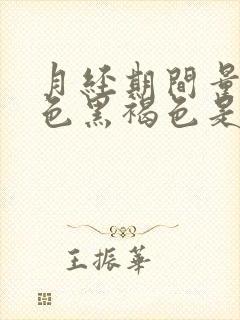 月经期間量
色黑褐色是
王振華